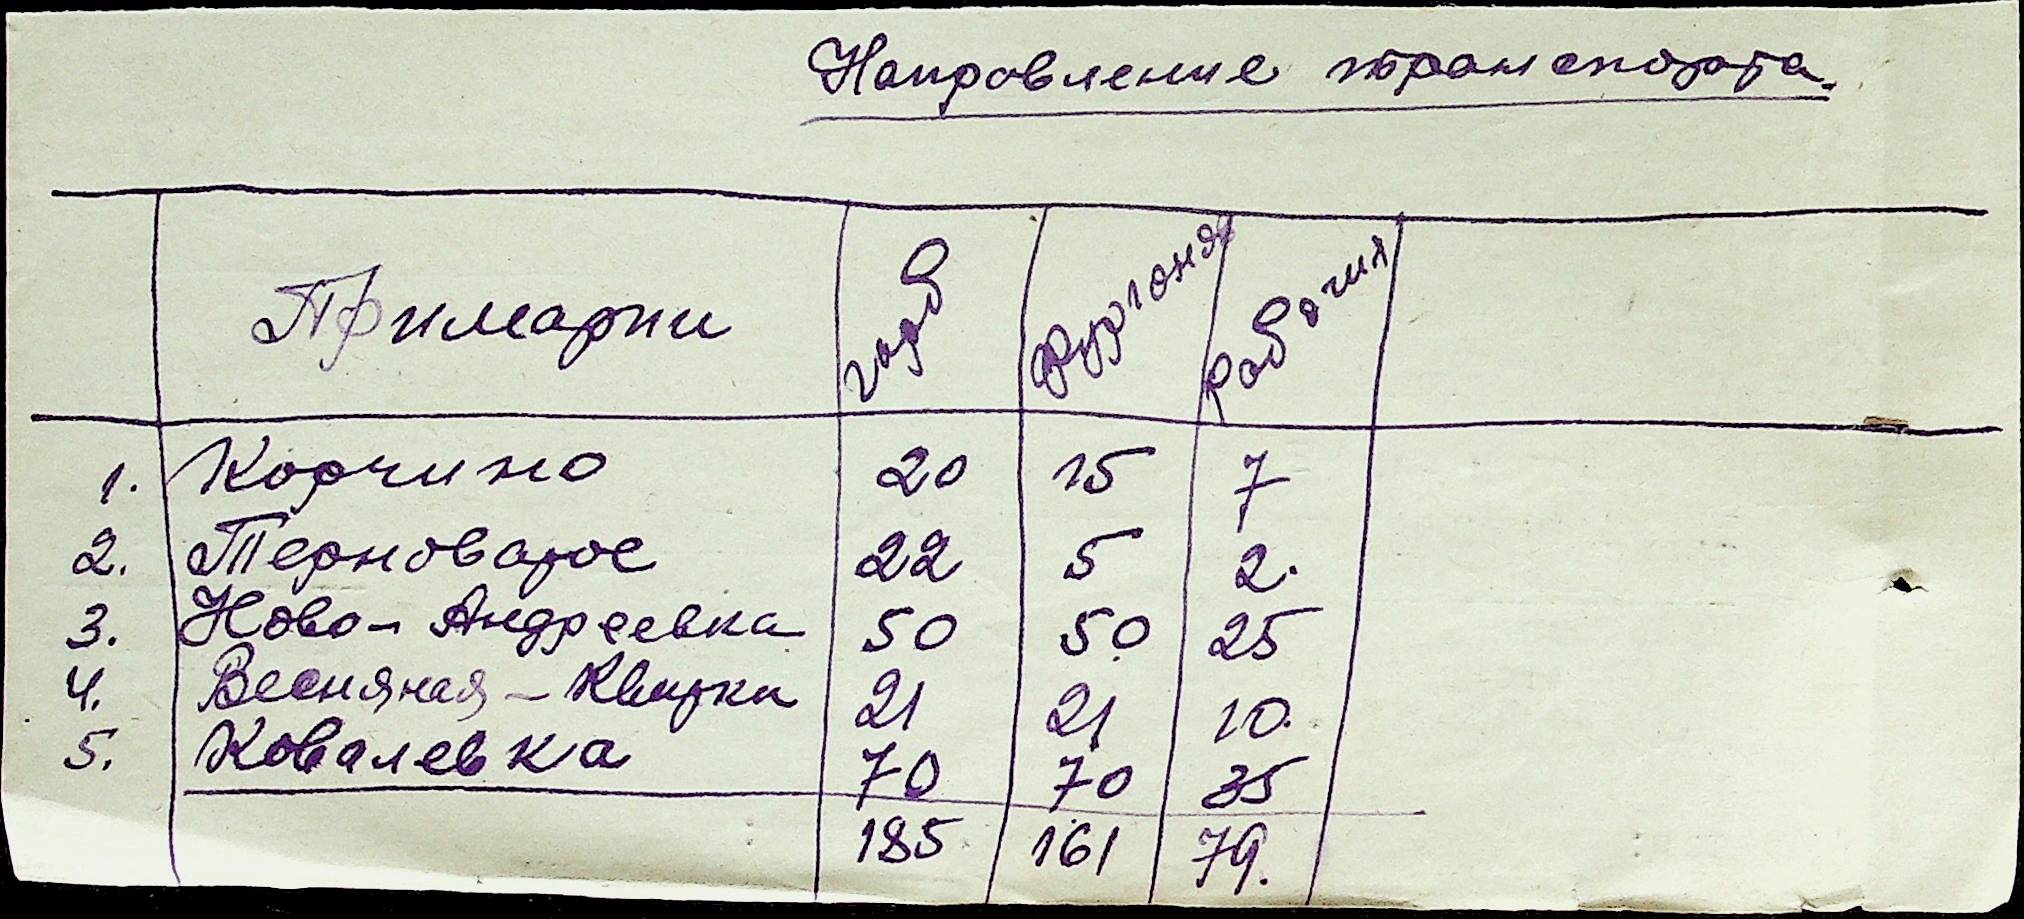 Направление транспорта.
Примарии гарб Фургоня Рабочия
1. Корчино 20 15 7
2. Терноватое 22 5 2.
3. Ново-Андреевка 50 50 25
4. Весняная-Квитки 21 21 10.
5. Ковалевка 70 70 35
185 161 79.